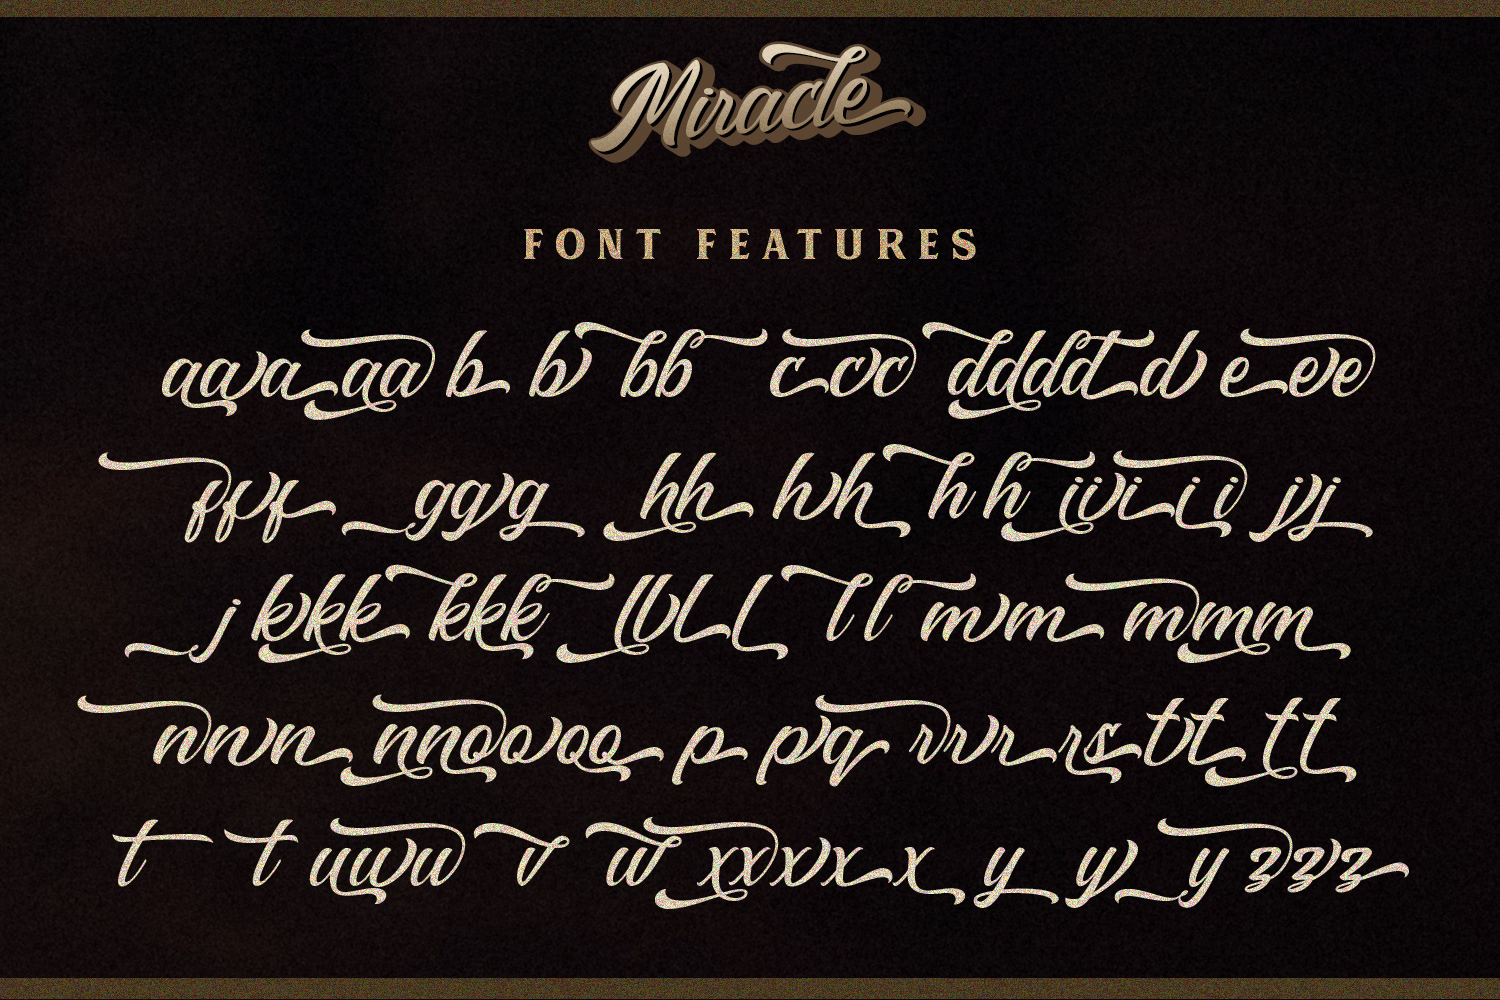 Miracle
FONT FEATURES
aaaa aa b b bb c cc ddddd d e ee
fff ggg hh hh h h iii i i jj
j kkk kkk lll l l l mm mmm
nnn nnooooo p pq rrr rs tt tt
t t uuu v w xxxxx y y y zzz